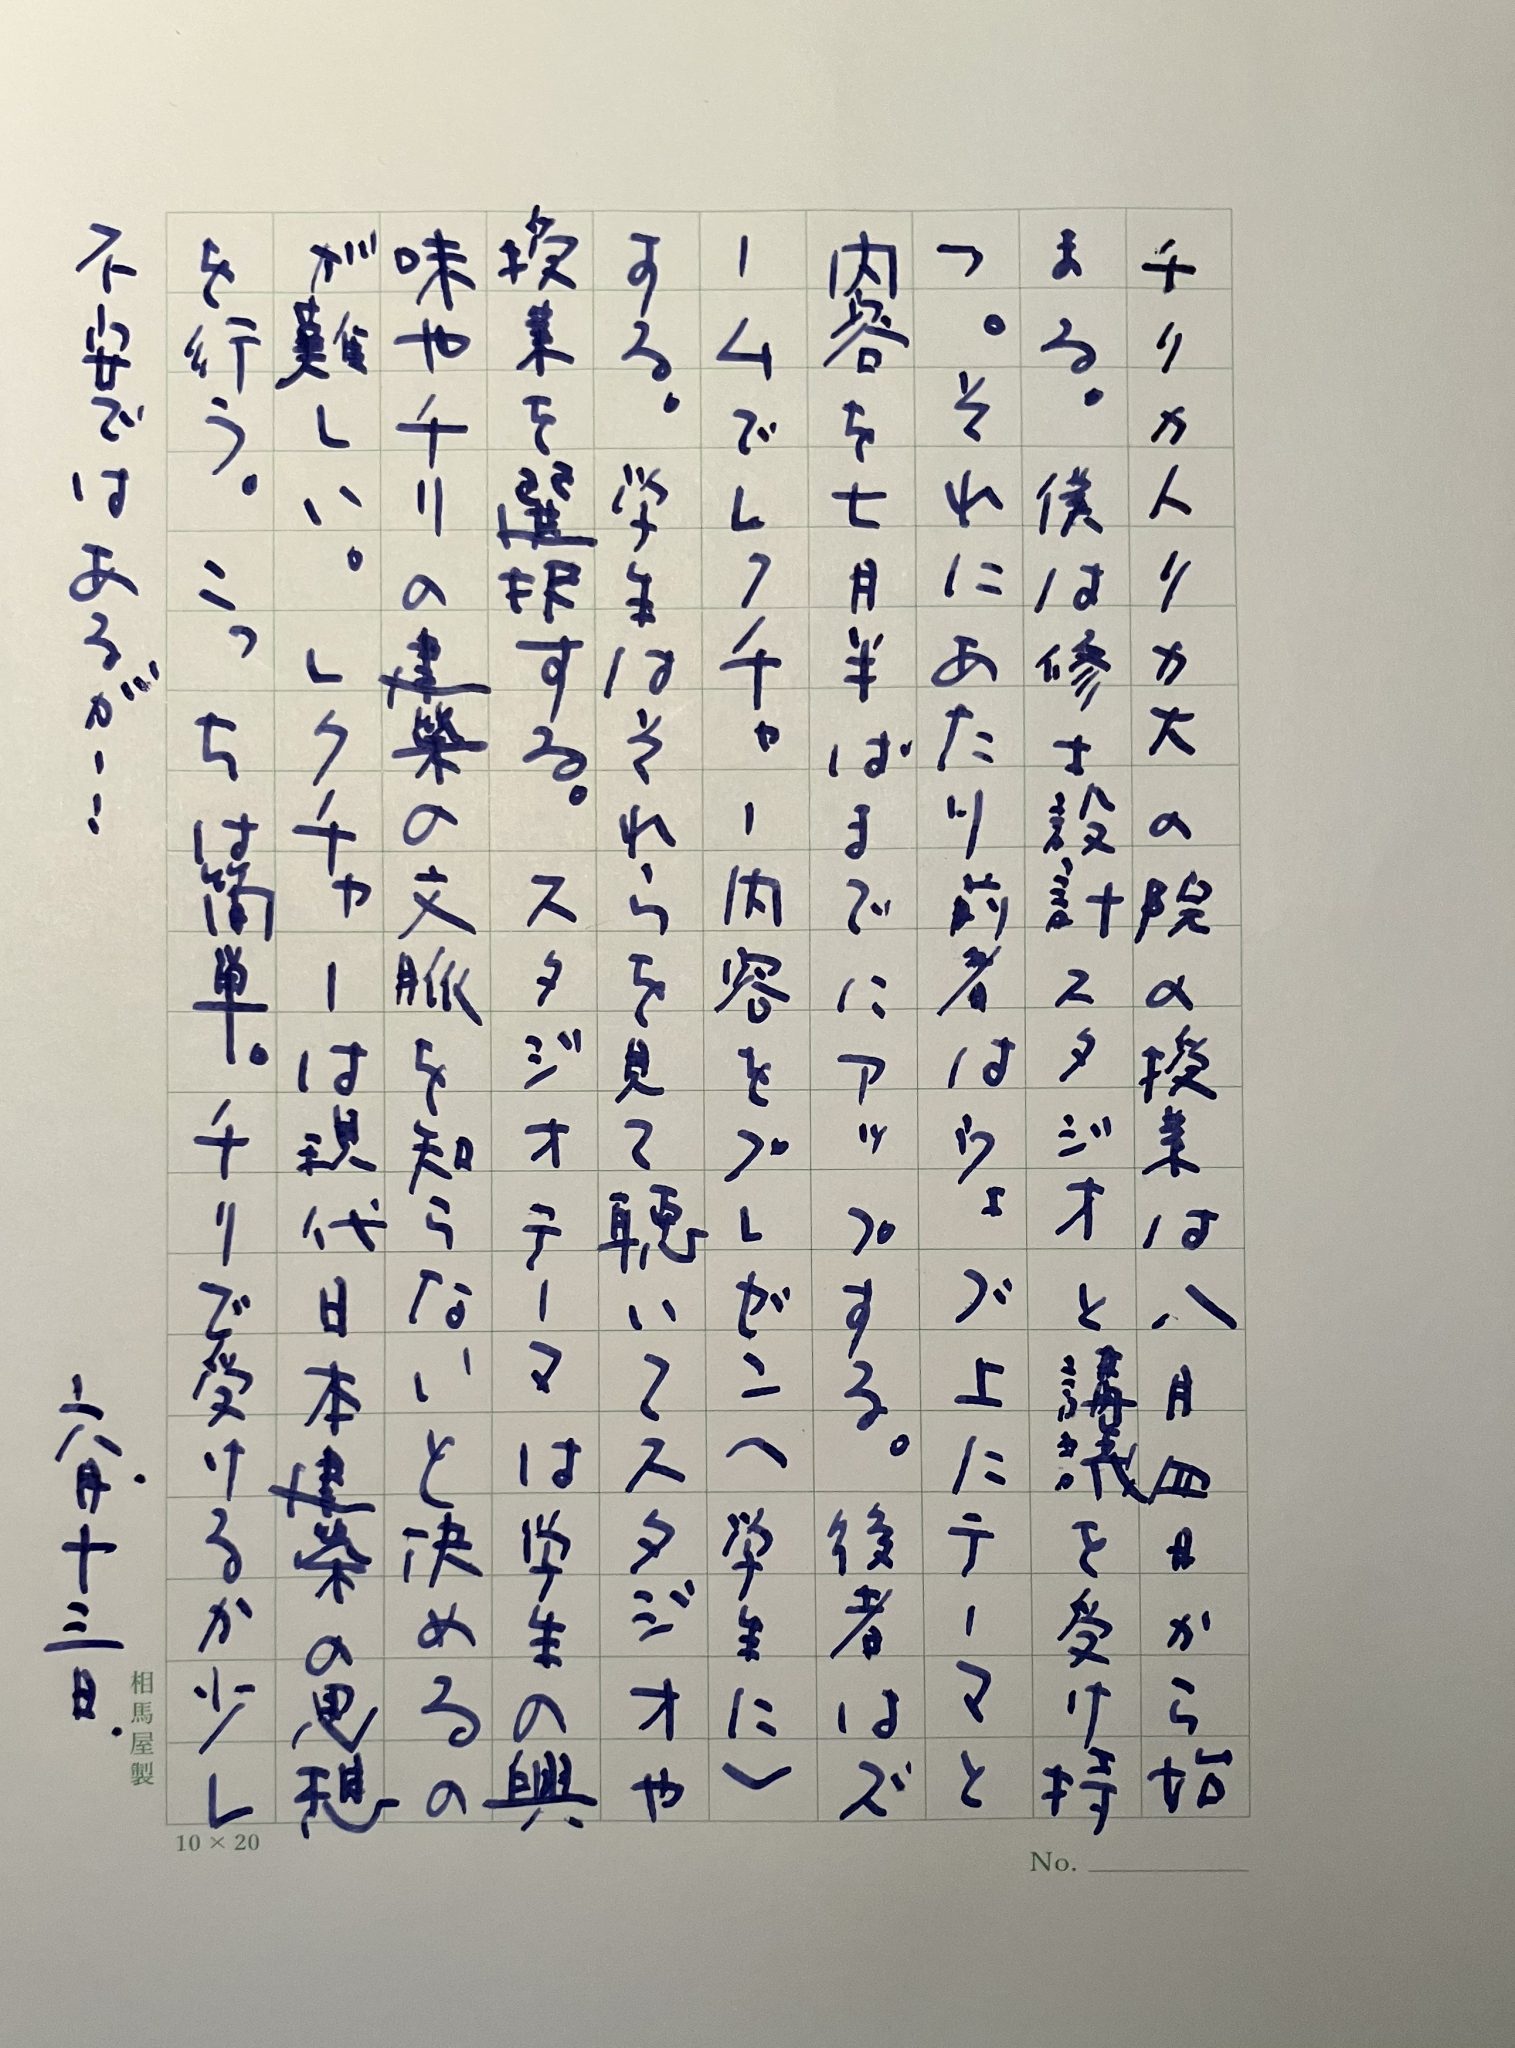 チリカ人リカ大の院の授業は八月四日から始
まる。僕は修士設計スタジオと講議を受け持
つ。それにあたり前者はウェブ上にテーマと
内容を七月半ばまでにアップする。後者はズ
ームでレクチャー内容をプレゼン（学生に）
する。学生はそれらを見て聴いてスタジオや
授業を選択する。スタジオテーマは学生の興
味やチリの建築の文脈を知らないと決めるの
が難しい。レクチャーは現代日本建築の思想
を行う。こっちは簡単。チリで受けるか少し
不安ではあるが……
六月十三日.
相馬屋製
10 × 20
No.